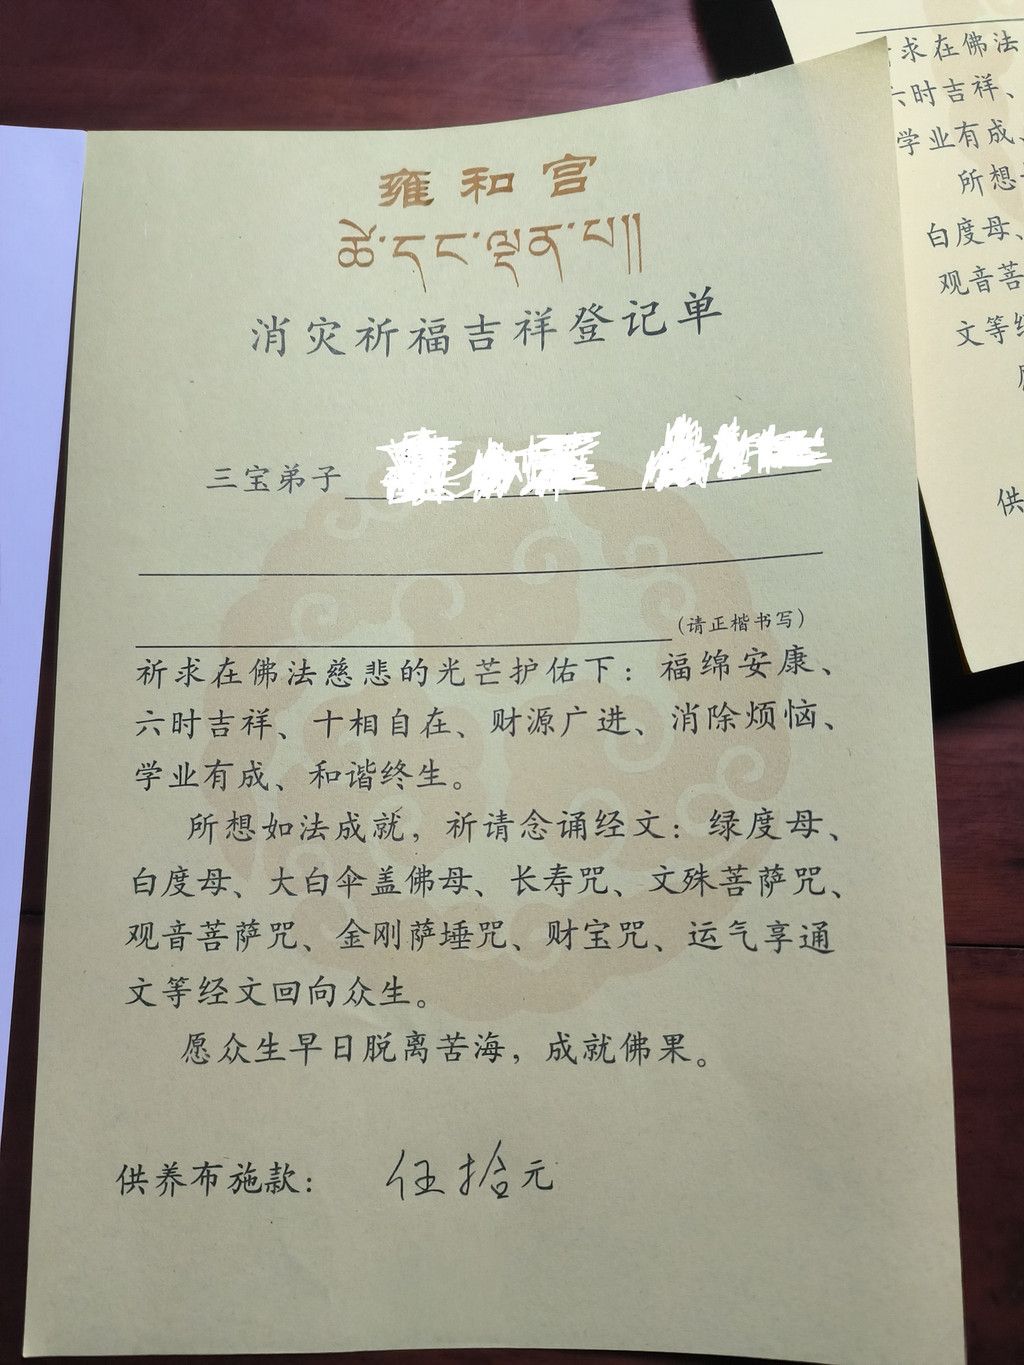 雍和宫
ཚེ་དང་ལྡན་པ།།
消灾祈福吉祥登记单
三宝弟子
(请正楷书写)
祈求在佛法慈悲的光芒护佑下：福绵安康、
六时吉祥、十相自在、财源广进、消除烦恼、
学业有成、和谐终生。
所想如法成就，祈请念诵经文：绿度母、
白度母、大白伞盖佛母、长寿咒、文殊菩萨咒、
观音菩萨咒、金刚萨埵咒、财宝咒、运气享通
文等经文回向众生。
愿众生早日脱离苦海，成就佛果。
供养布施款： 伍拾元
求在佛法
六时吉祥、
学业有成、
所想
白度母、
观音菩
文等经
供